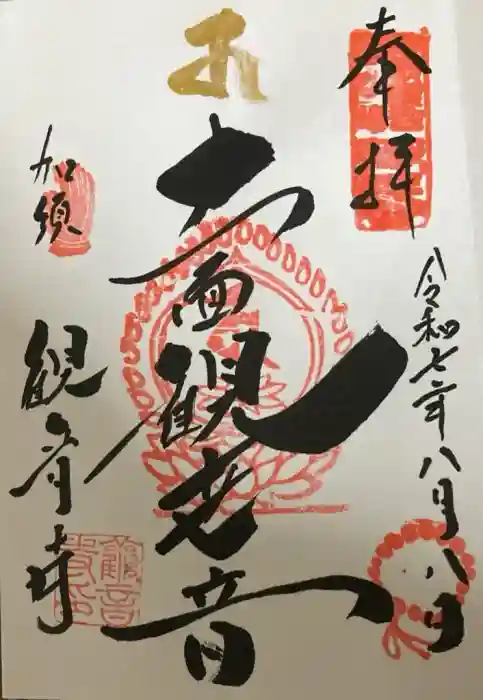 奉拝
令和七年八月八日
十一面観世音
加須
観音寺
觀音
寺印